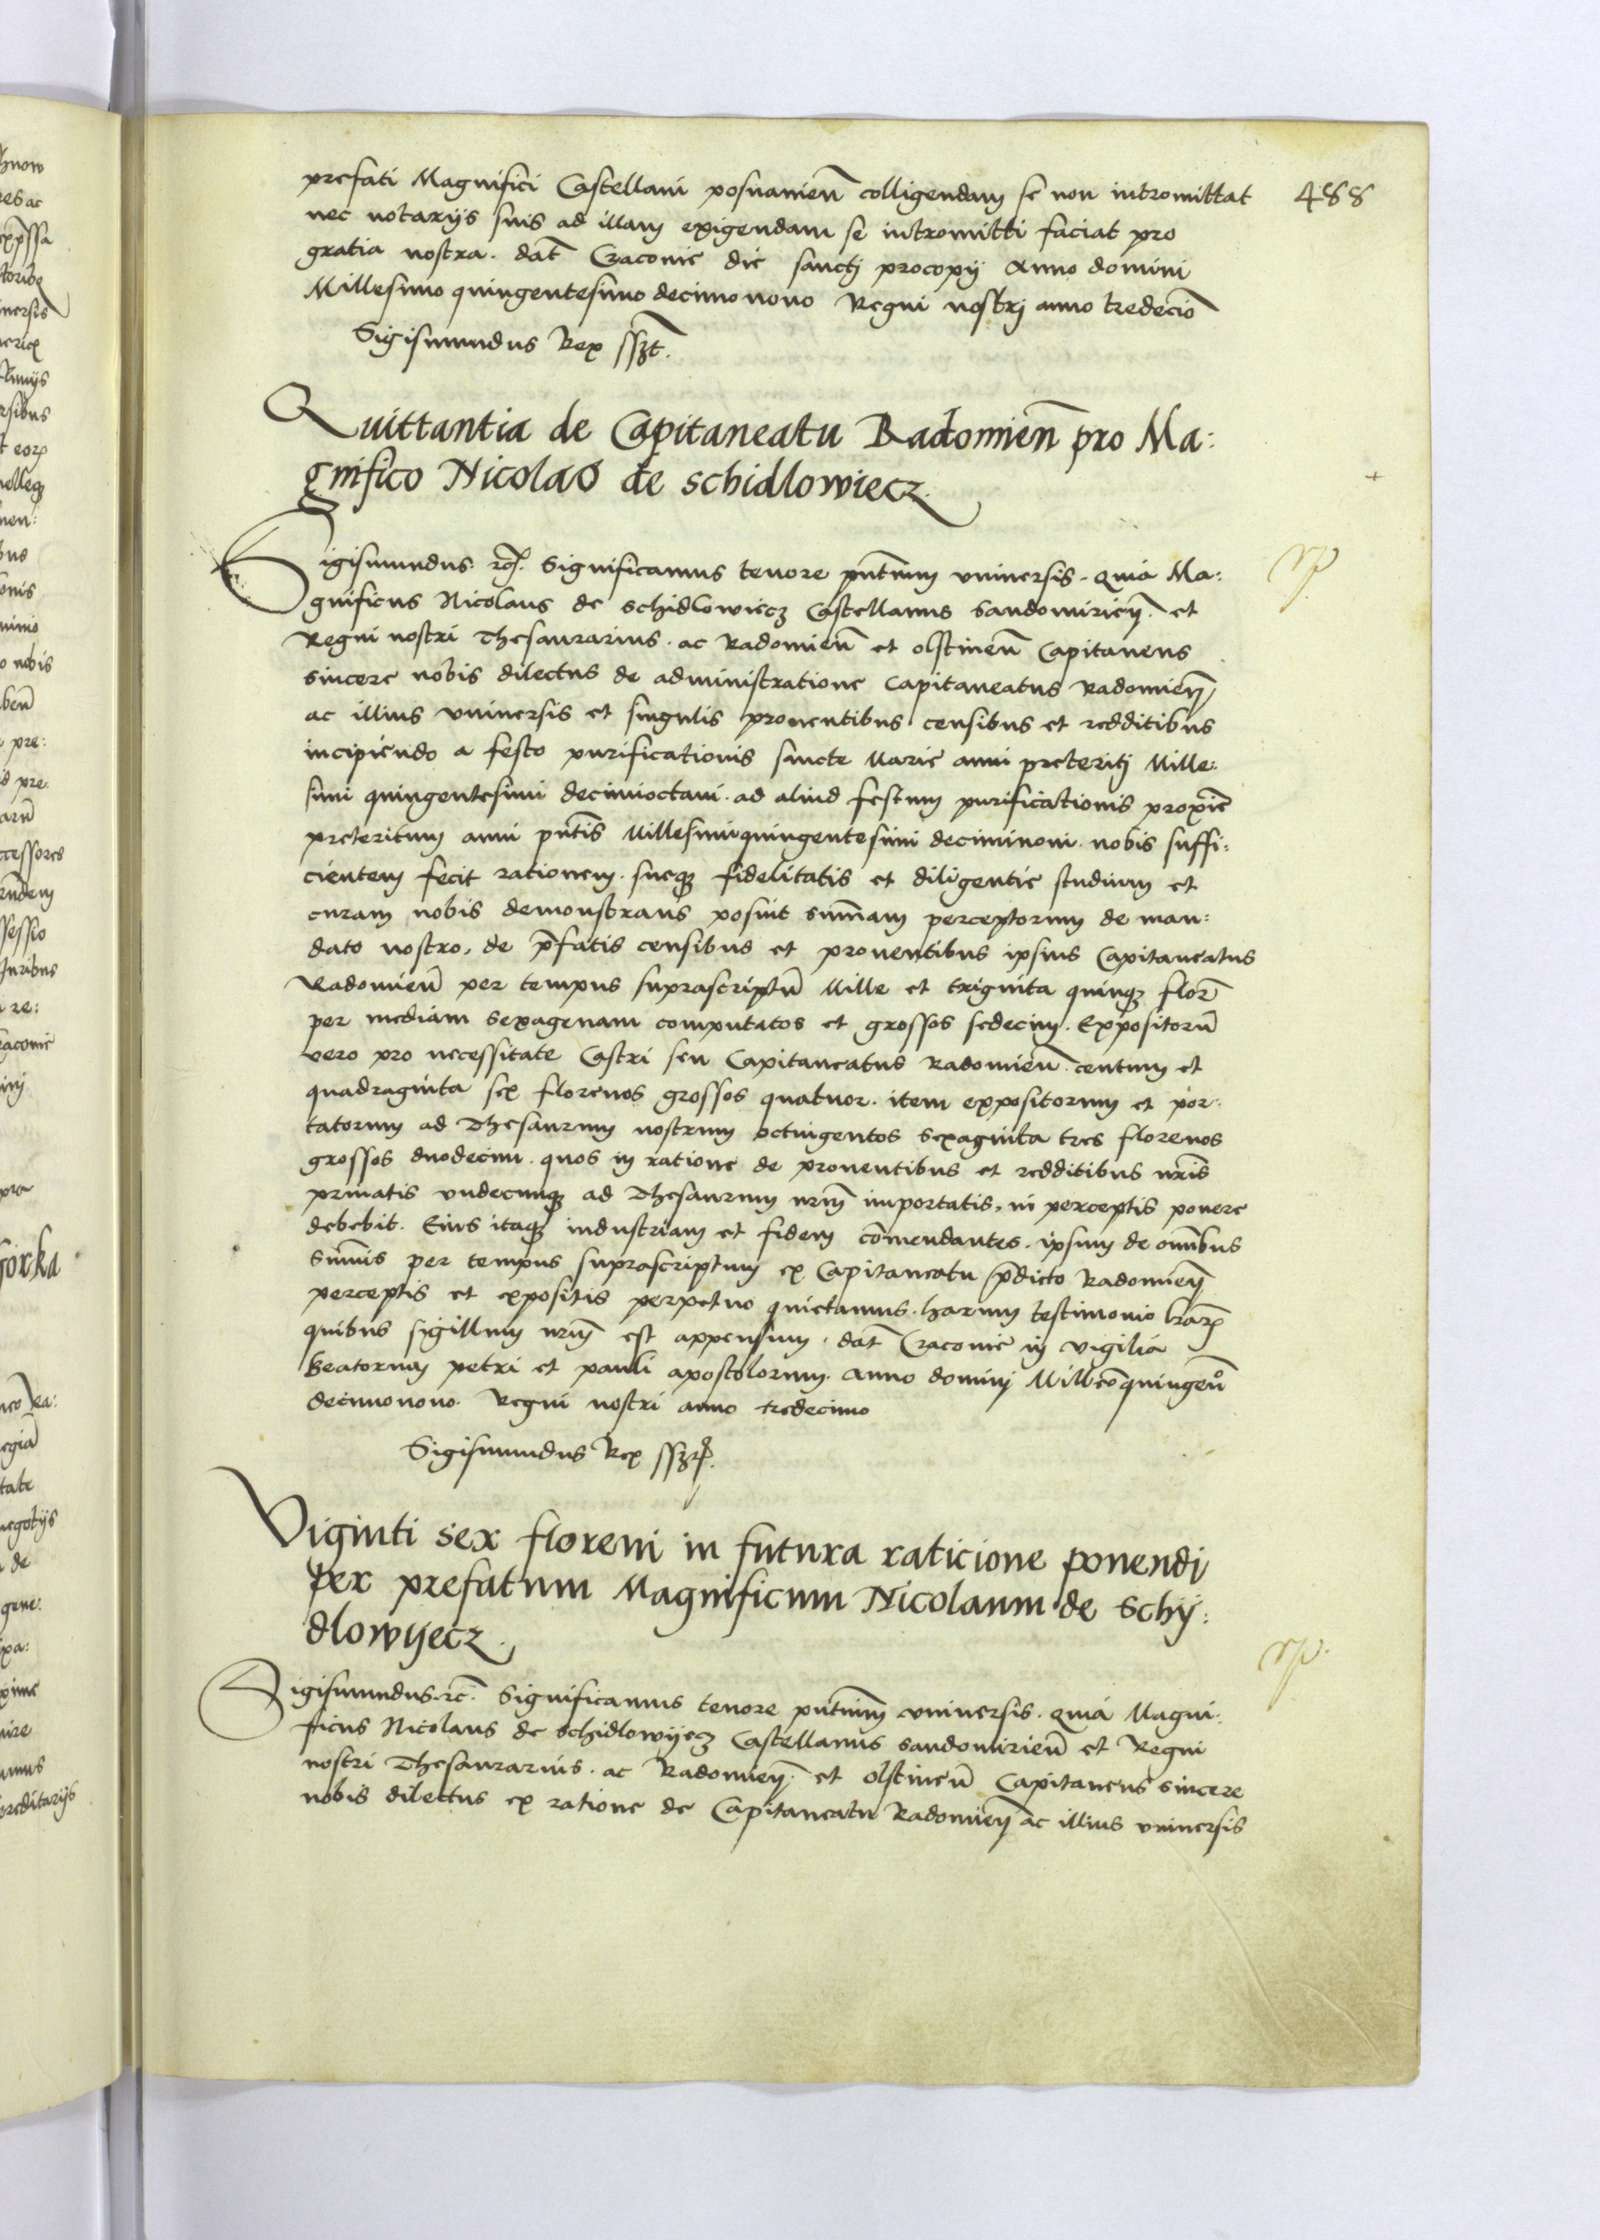 prefati Magnifici Castellani posnanien̄ colligendam se non intromittat
488
nec notarijs suis ad illam exigendam se intromitti faciat pro
gratia nostra. dat̄ Cracovie die sanctj procopij Anno domini
Millesimo quingentesimo decimonono Regni nostrj anno tredecīo
Sigismundus Rex sszt.
Quittantia de Capitaneatu Radomien̄ pro Ma:
gnifico Nicolao de schidlowiecz.
Sigismundus. rc̄. Significamus tenore pn̄tium vniuersis. quia Ma:
gnificus Nicolaus de schidlowiecz Castellanus Sandomirien̄. et
Regni nostri Thesaurarius. ac Radomien̄ et olstinen̄ Capitaneus
sincere nobis dilectus de administratione Capitaneatus Radomien̄
ac illius vniuersis et singulis prouentibus censibus et redditibus
incipiendo a festo purificationis sancte Marie anni preteritj Mille:
simi quingentesimi decimioctaui. ad aliud festum purificationis proxīe
preteritum anni pn̄tis Millesimiquingentesimi deciminoni. nobis suffi:
cientem fecit rationem. sueq; fidelitatis et diligentie studium et
curam nobis demonstrans posuit sum̄am perceptorum de man:
dato nostro. de p̄fatis censibus et prouentibus ipsius Capitaneatus
Radomien̄ per tempus suprascriptū Mille et triginta quinq; flor̄
per mediam sexagenam computatos et grossos sedecim. Expositorū
vero pro necessitate Castri seu Capitaneatus Radomien̄. centum et
quadraginta sex florenos grossos quatuor. item expositorum et por:
tatorum ad Thesaurum nostrum octingentos sexaginta tres florenos
grossos duodecim. quos in ratione de prouentibus et redditibus nr̄is
priuatis vndecunq; ad Thesaurum nrm̄ importatis. in perceptis ponere
debebit. Eius itaq; industriam et fidem com̄endantes. ipsum de omībus
sum̄is per tempus suprascriptum ex Capitaneatu p̄dicto Radomien̄
perceptis et expositis perpetuo quietamus. harum testimonio lrar̄
quibus sigillum nrm̄ est appensum. dat̄ Cracovie in vigilia
Beatorum petri et pauli apostolorum. Anno dominj Millēoquingen̄o
decimonono. Regni nostri anno tredecimo
Sigismundus Rex sszt.
Viginti sex floreni in futura raticione ponendj
per prefatum Magnificum Nicolaum de Schÿ:
dlowÿecz.
Sigismundus. rc̄. Significamus tenore pn̄tium̄ vniuersis. quia Magni:
ficus Nicolaus de schidlowÿecz Castellanus sandomirien̄ et Regni
nostri Thesaurarius. ac Radomien̄. et olstinen̄ Capitaneus sincere
nobis dilectus ex ratione de Capitaneatu Radomien̄ ac illius vniuersis